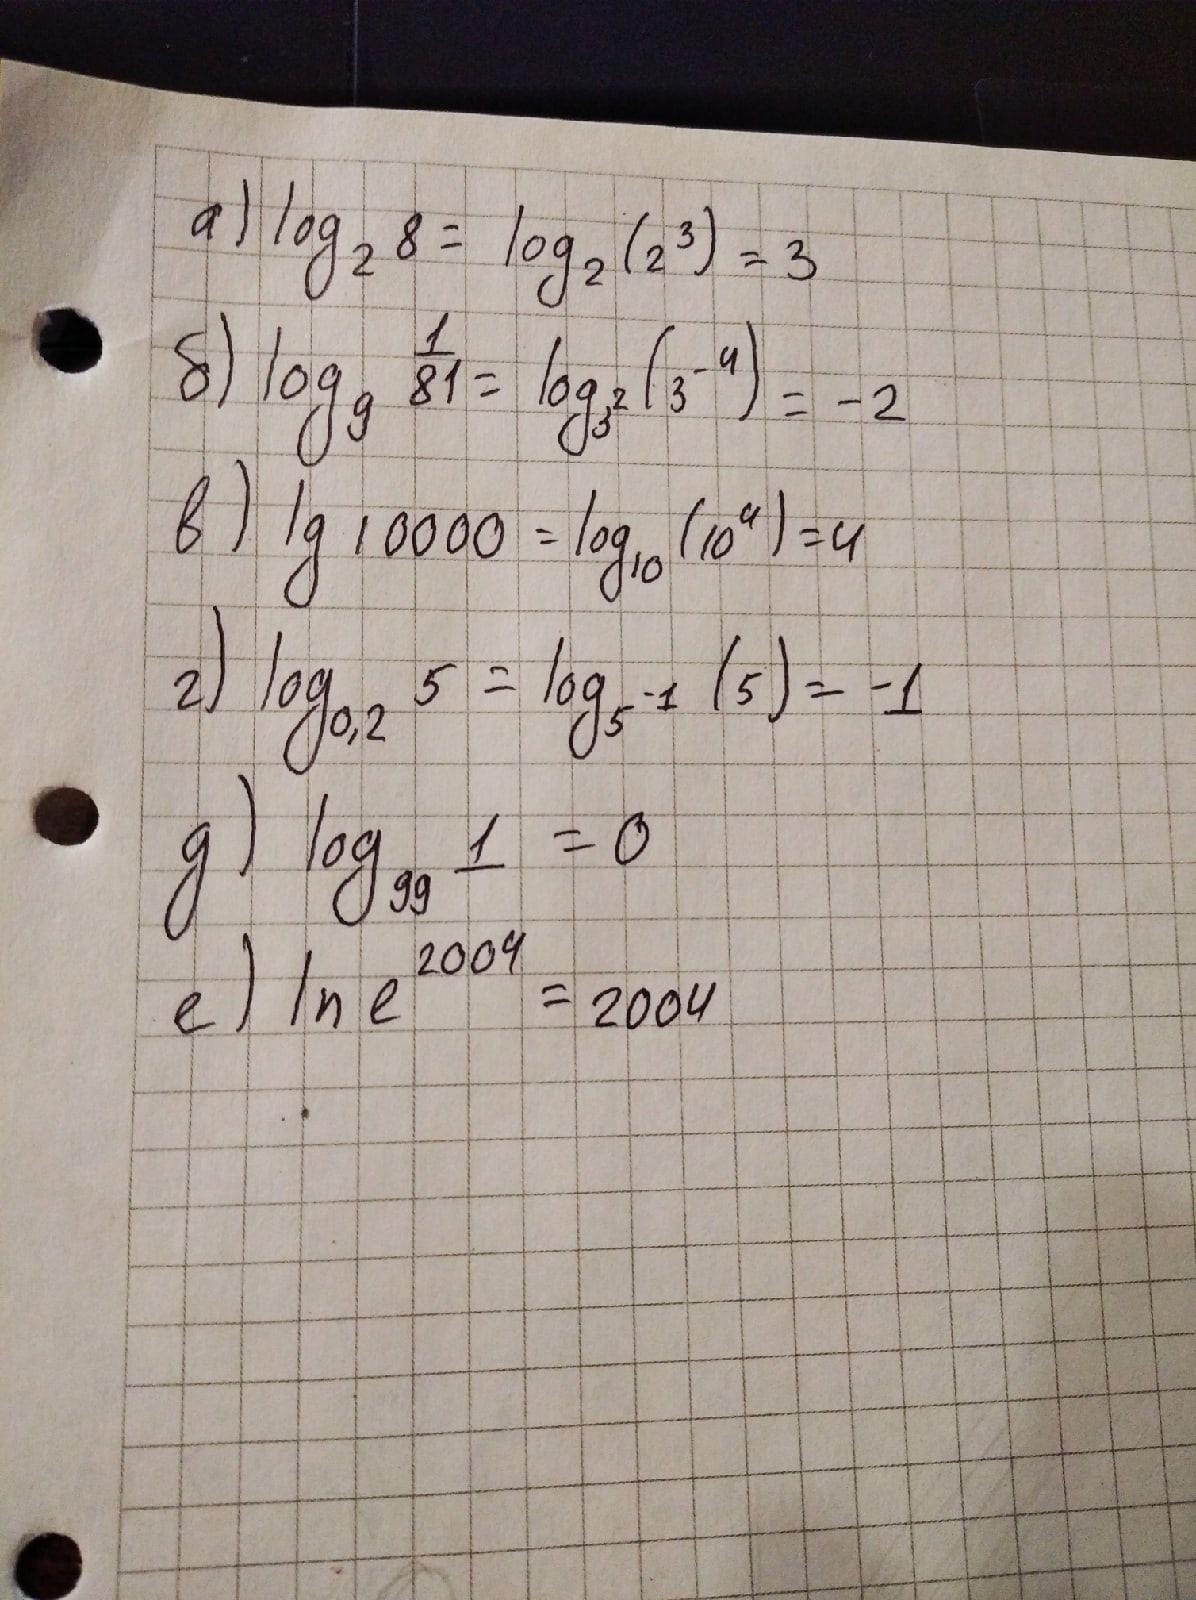 а) log₂ 8 = log₂ (2³) = 3
б) log₉ 1/81 = log₃² (3⁻⁴) = -2
в) lg 10000 = log₁₀ (10⁴) = 4
г) log₀,₂ 5 = log₅⁻¹ (5) = -1
д) log₉₉ 1 = 0
е) ln e²⁰⁰⁴ = 2004